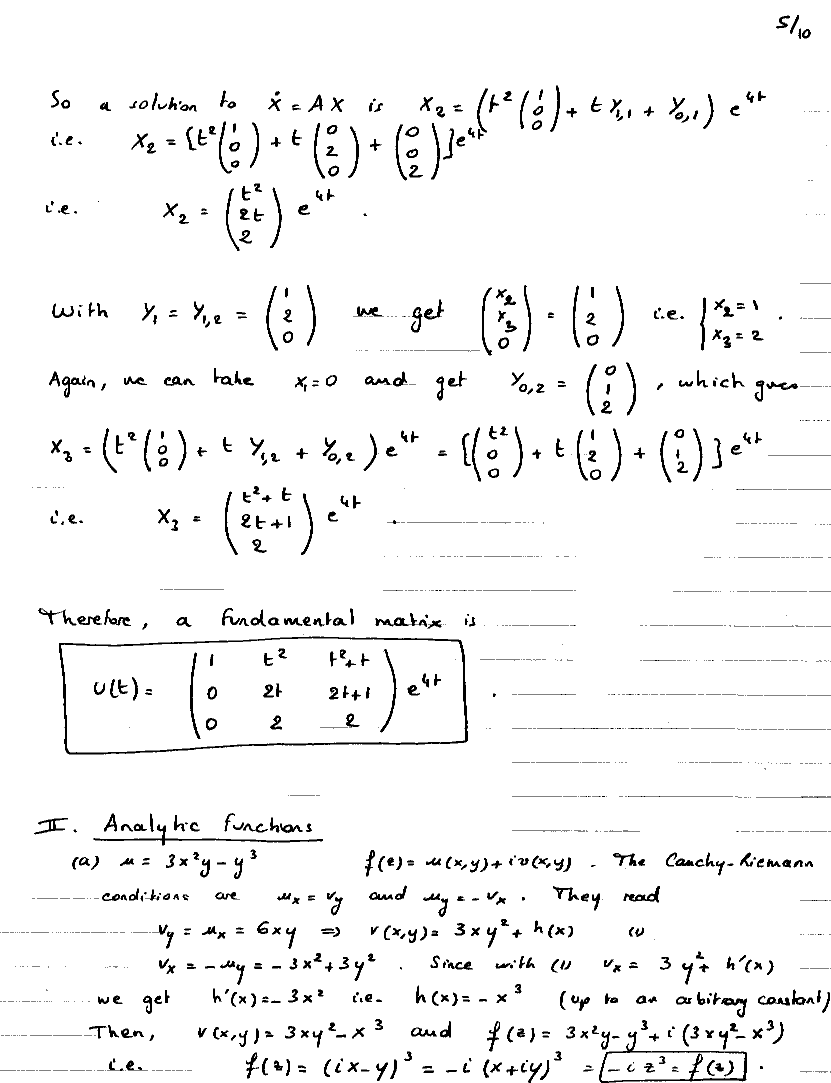 5/10
So a solution to ẋ = AX is X₂ = (t² (1 0 0) + t Y₁,₁ + Y₀,₁) e^{4t}
i.e. X₂ = [t² (1 0 0) + t (0 2 0) + (0 0 2)] e^{4t}
i.e. X₂ = (t² 2t 2) e^{4t} .
With Y₁ = Y₁,₂ = (1 2 0) we get (x₂ x₃ 0) = (1 2 0) i.e. { x₂ = 1 x₃ = 2 .
Again, we can take x₁ = 0 and get Y₀,₂ = (0 1 2) , which gives
X₃ = (t² (1 0 0) + t Y₁,₂ + Y₀,₂) e^{4t} = [(t² 0 0) + t (1 2 0) + (0 1 2)] e^{4t}
i.e. X₃ = (t²+t 2t+1 2) e^{4t} .
Therefore, a fundamental matrix is
U(t) = (1 t² t²+t
0 2t 2t+1
0 2 2) e^{4t} .
II. Analytic functions
(a) u = 3x²y − y³ f(z) = u(x,y) + iv(x,y) . The Cauchy-Riemann
conditions are u_x = v_y and u_y = −v_x . They read
v_y = u_x = 6xy ⇒ v(x,y) = 3xy² + h(x) (1)
v_x = −u_y = −3x² + 3y² . Since with (1) v_x = 3y² + h'(x)
we get h'(x) = −3x² i.e. h(x) = −x³ (up to an arbitrary constant)
Then, v(x,y) = 3xy² − x³ and f(z) = 3x²y − y³ + i(3xy² − x³)
i.e. f(z) = (ix − y)³ = −i (x + iy)³ = −i z³ = f(z) .